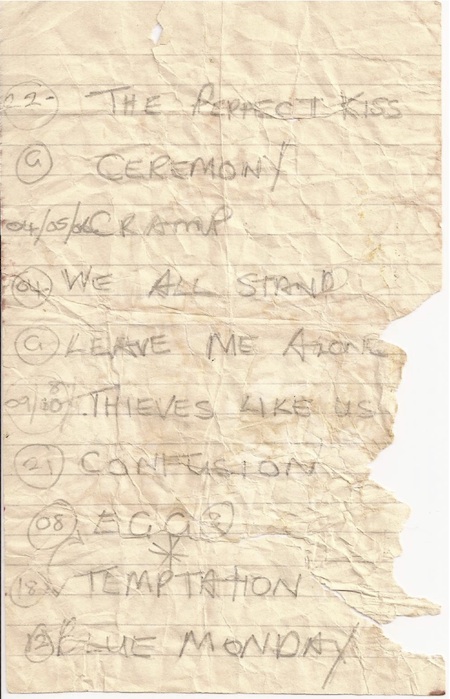 22- THE PERFECT KISS
a CEREMONY
04/05/06 CRAMP
04 WE ALL STAND
a LEAVE ME ALONE
09/20/8 THIEVES LIKE US
21 CONFUSION
08 EGG
18 TEMPTATION
BLUE MONDAY